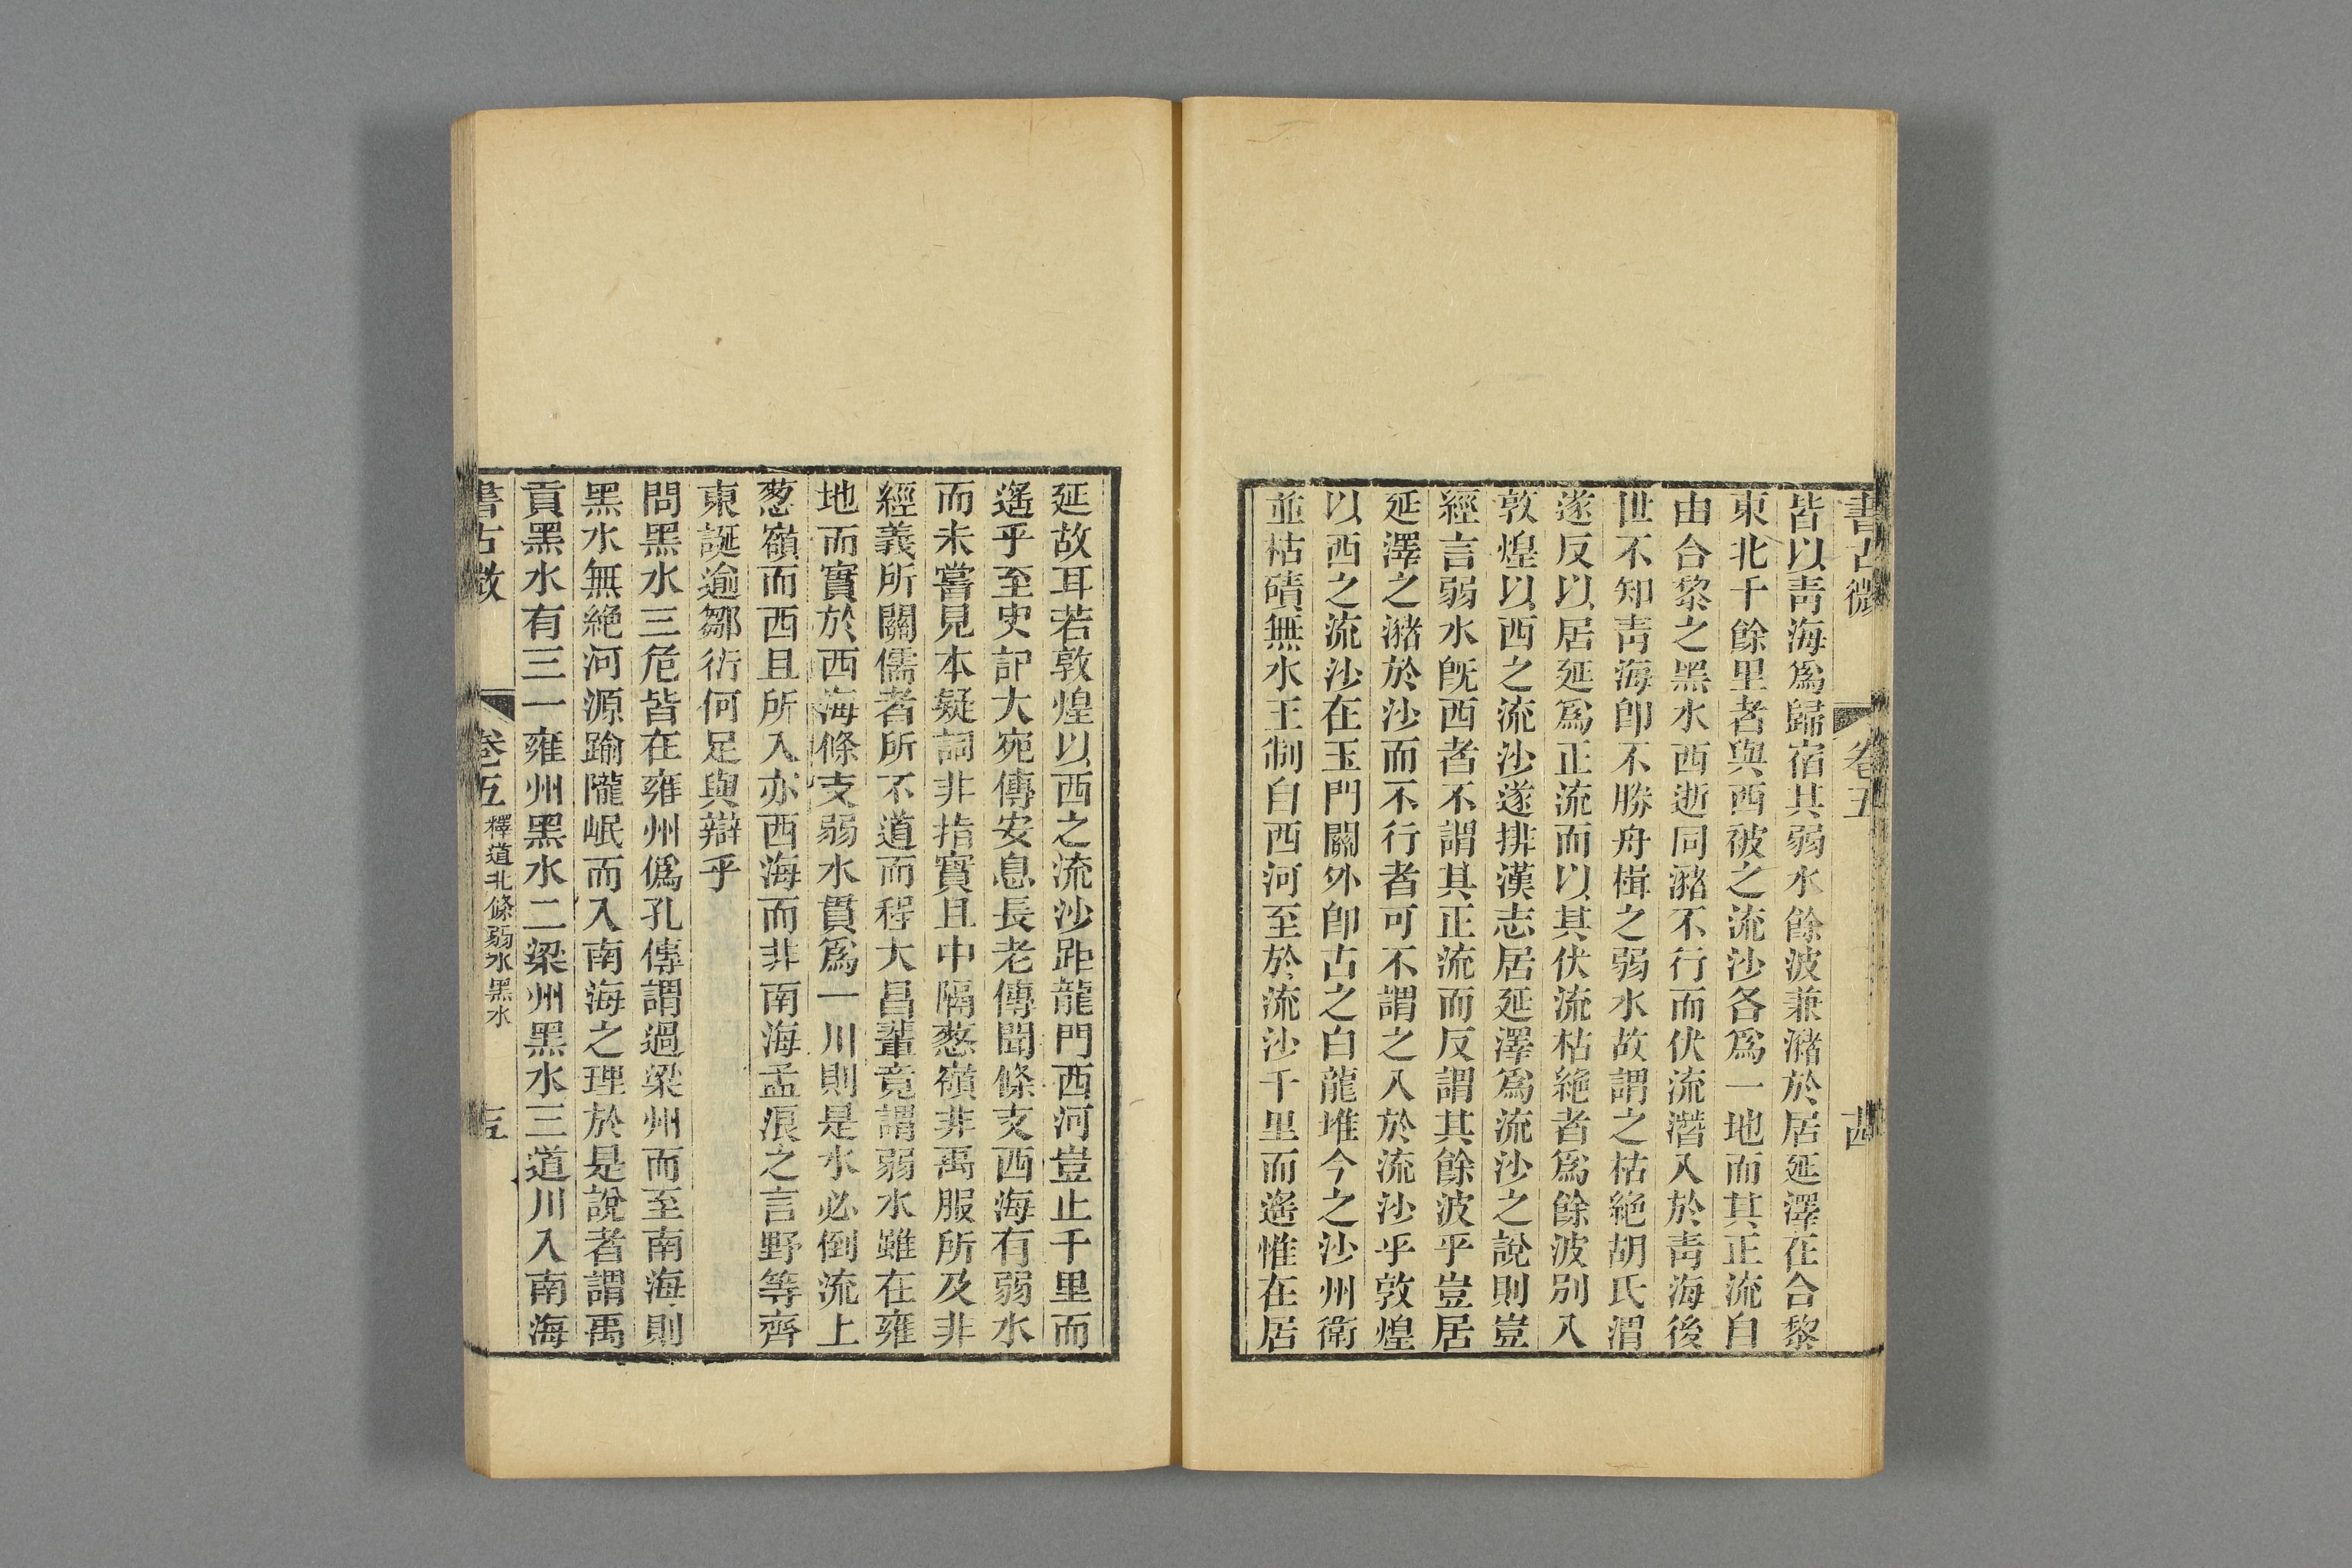 書古微 卷五 古
皆以靑海爲歸宿其弱水餘波兼瀦於居延澤在合黎
東北千餘里者與西被之流沙各爲一地而其正流自
由合黎之黑水西逝同瀦不行而伏流潛入於靑海後
世不知靑海卽不勝舟楫之弱水故謂之枯絶胡氏渭
遂反以居延爲正流而以其伏流枯絶者爲餘波別入
敦煌以西之流沙遂排漢志居延澤爲流沙之說則豈
經言弱水旣西者不謂其正流而反謂其餘波乎豈居
延澤之瀦於沙而不行者可不謂之入於流沙乎敦煌
以西之流沙在玉門關外卽古之白龍堆今之沙州衛
並枯磧無水王制自西河至於流沙千里而遙惟在居
延故耳若敦煌以西之流沙距龍門西河豈止千里而
遙乎至史記大宛傳安息長老傳聞條支西海有弱水
而未嘗見本疑詞非指實且中隔葱嶺非禹服所及非
經義所關儒者所不道而程大昌輩竟謂弱水雖在雍
地而實於西海條支弱水貫爲一川則是水必倒流上
葱嶺而西且所入亦西海而非南海孟浪之言野等齊
東誕逾鄒衍何足與辯乎
問黑水三危皆在雍州僞孔傳謂過梁州而至南海則
黑水無絶河源踰隴岷而入南海之理於是說者謂禹
貢黑水有三一雍州黑水二梁州黑水三道川入南海
書古微 卷五 釋道北條弱水黑水